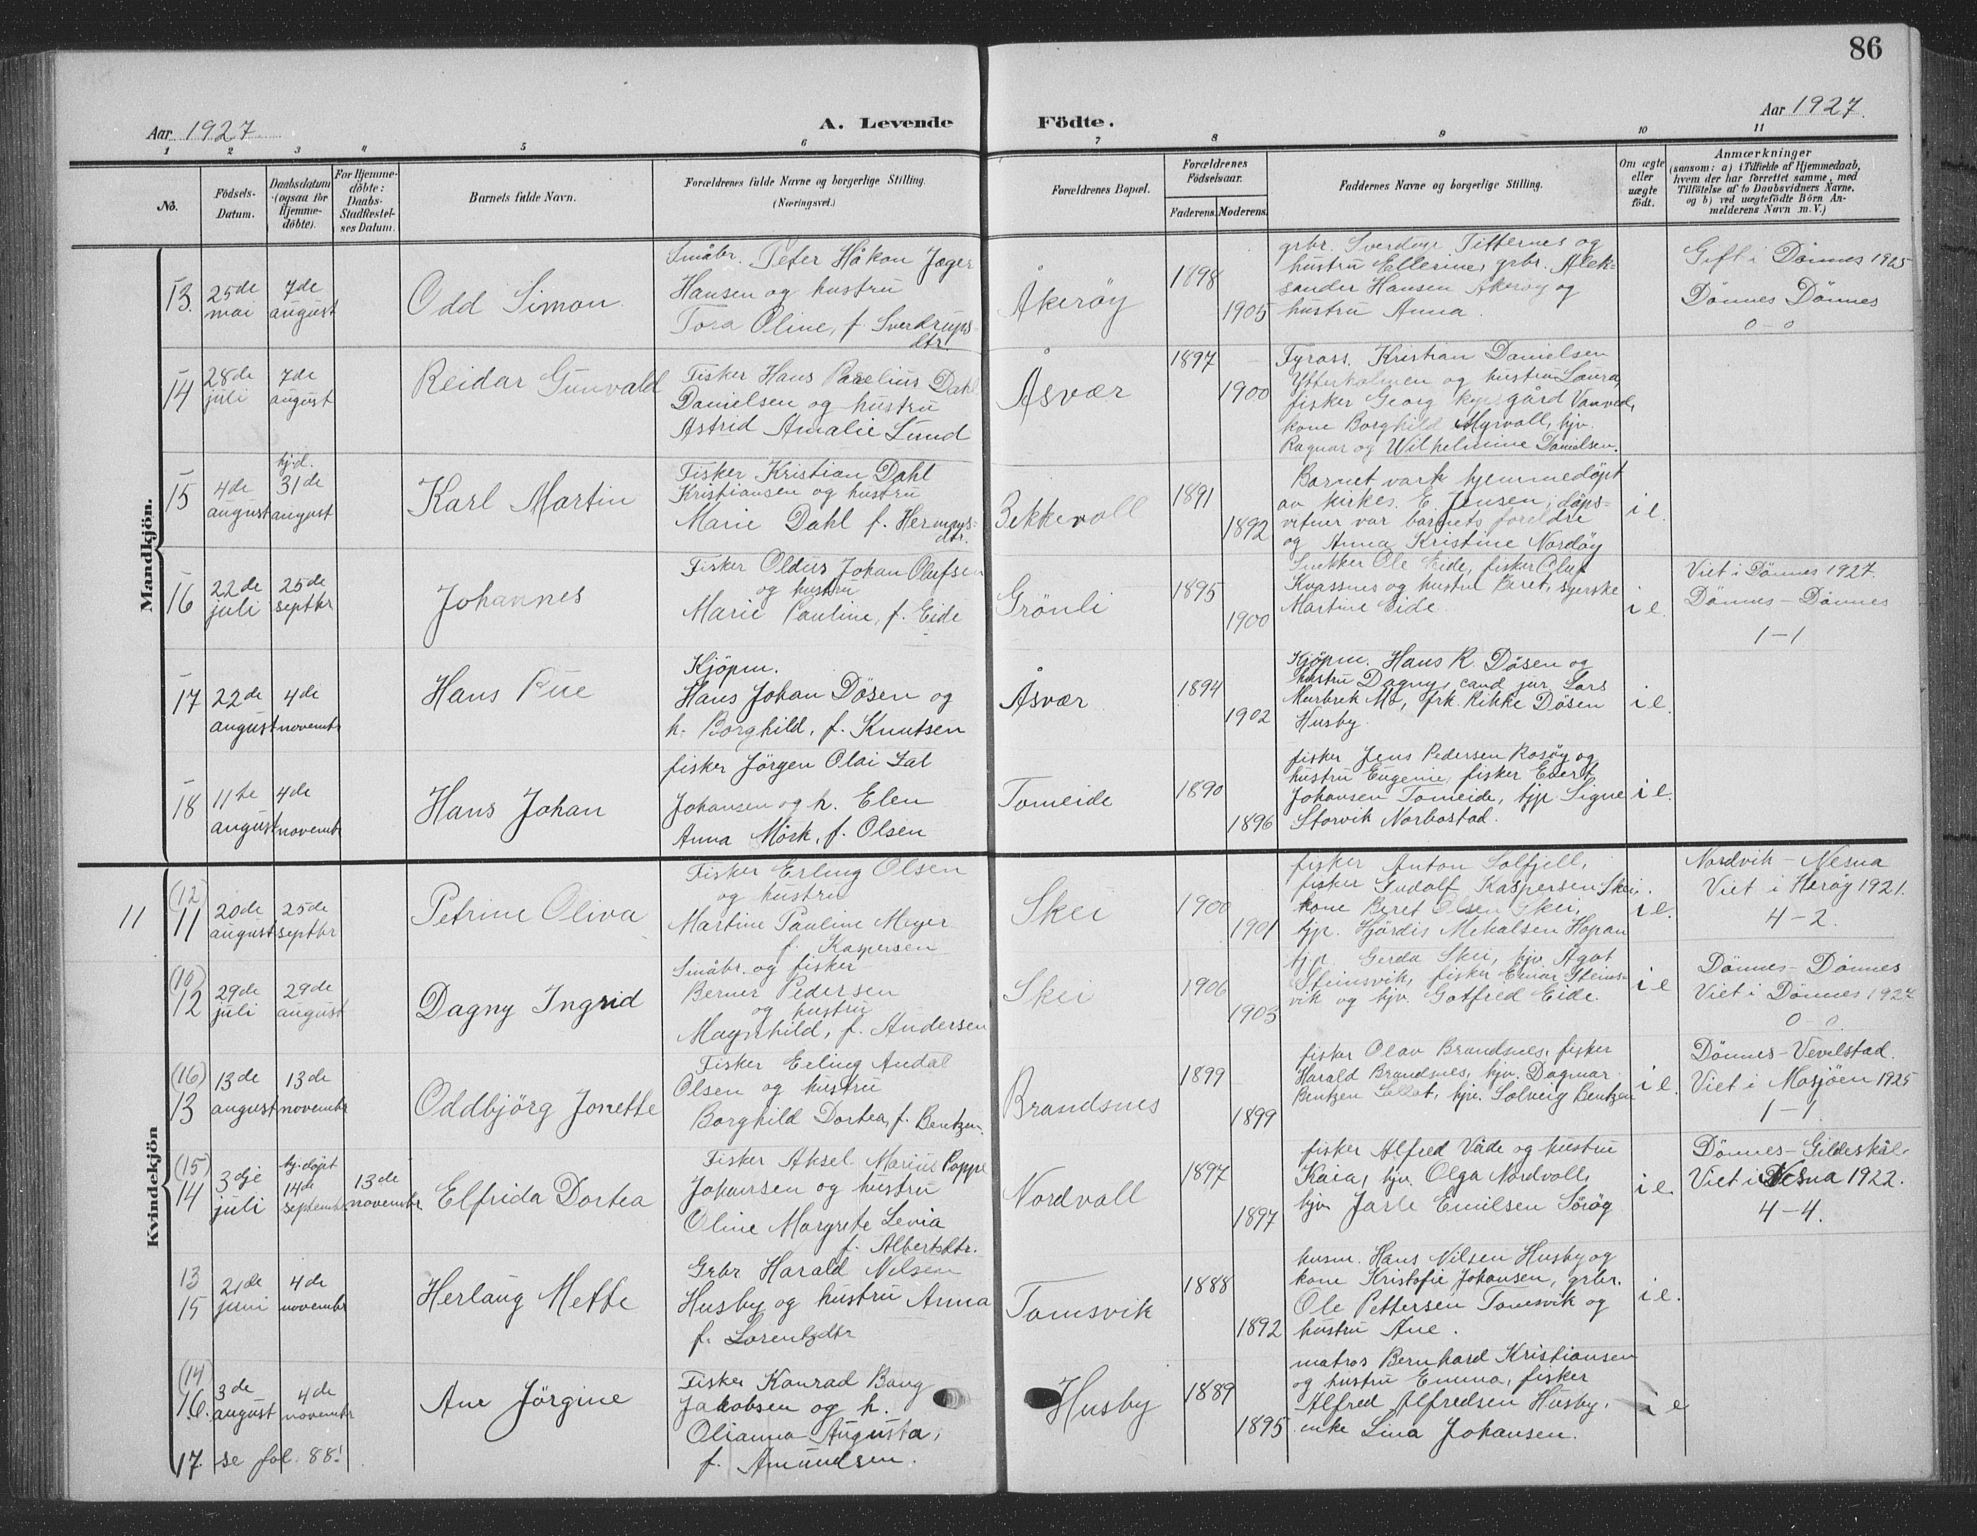 86
Aar 1927
A. Levende
Födte.
Aar 1927.
1 2 3 4 5 6 7 8 9 10 11
No.
Födsels-
Datum.
Daabsdatum
(ogsaa för
Hjemme-
döbte).
For Hjemme-
döbte:
Daabs-
Stadfæstel-
ses Datum.
Barnets fulde Navn.
Forældrenes fulde Navne og borgerlige Stilling.
(Næringsvei.)
Forældrenes Bopæl.
Forældrenes
Födselsaar.
Faderens.
Moderens.
Faddernes Navne og borgerlige Stilling.
Om ægte
eller
uægte
født.
Anmærkninger
(saasom: a) i Tilfælde af Hjemmedaab,
hvem der har forrettet samme, med
Tilföielse af to Daabsvidners Navne.
og b) ved uægtefödte Börn An-
melderens Navn m. V.)
Mandkjön.
13.
25de
mai
7de
august
Odd Simon
Småbr. Peter Håkon Jæger
Hansen og hustru
Tora Oline, f. Sverdrups-
dtr.
Åkerøy
1898
1905
grbr. Sverdrup Titternes og
hustru Ellerine, grbr. Alek-
sander Hansen Åkerøy og
hustru Anna.
Gift i Dønnes 1925
Dønnes Dønnes
0-0
14
28de
juli
7de
august
Reidar Gunvald
Fisker Hans Parelius Dahl
Danielsen og hustru
Astrid Amalie Lund
Åsvær
1897
1900
Fyrass. Kristian Danielsen
Ytterholmen og hustru Laura,
fisker Georg
kone Borghild Myrvoll, hjv.
Ragnar og Wilhelmine Danielsen.
15
4de
august
hj.d.
31de
august
Karl Martin
Fisker Kristian Dahl
Kristiansen og hustru
Marie Dahl f. Hermans-
dtr.
Bekkevoll
1891
1892
Barnet vart hjemmedøpt
av kirkes. E. Jensen, dåps-
vitner var barnets foreldre
og Anna Kristine Nordøy
i e.
16
22de
juli
25de
septbr
Johannes
Fisker Oldus Johan Olufsen
og hustru
Marie Pauline, f. Eide
Grönli
1895
1900
Snekker Ole Eide, fisker Oluf
Kvassnes og hustru Beret, syerske
Martine Eide.
i e.
Viet i Dønnes 1927.
Dønnes - Dønnes
1-1
17
22de
august
4de
novembr
Hans Rue
Kjöpm.
Hans Johan Døsen og
h. Borghild, f. Knutsen
Åsvær
1894
1902
Kjöpm. Hans R. Døsen og
hustru Dagny, cand jur Lars
Murbrek Mo, frk. Rikke Døsen
Husby.
i e.
18
11te
august
4de
novembr
Hans Johan
fisker Jörgen Olai Zal
Johansen og h. Elen
Anna Mörk, f. Olsen
Tomeide
1890
1896
fisker Jens Pedersen Rosøy og
hustru Eugenie, fisker Evert
Johansen Tomeide, hjp. Signe
Storvik Norbostad.
i e.
Kvindekjön
11
(12)
11
20de
august
25de
septbr
Petrine Oliva
Fisker Erling Olsen
og hustru
Martine Pauline Meyer
f. Kaspersen
Skei
1900
1901
fisker Anton Solfjell,
fisker Gudolf Kaspersen Skei.
kone Beret Olsen Skei,
hjp. Hjördis Mikalsen Hopan
i e.
Nordvik - Nesna
Viet i Herøy 1921.
4-2.
(10)
12
29de
juli
29de
august
Dagny Ingrid
Småbr. og fisker
Berner Pedersen
og hustru
Magnhild, f. Andersen
Skei
1906
1903
hjp. Gerda Skei, hjv. Agot
Steinsvik, fisker Einar Steins-
vik og hjv. Gotfred Eide.
i e
Dønnes - Dønnes
Viet i Dønnes 1927
0-0
(16)
13
13de
august
13de
novembr
Oddbjörg Jonette
Fisker Erling Andal
Olsen og hustru
Borghild Dortea, f. Bentzen.
Brandsnes
1899
1899
fisker Olav Brandsnes, fisker
Harald Brandsnes, hjv. Dagmar
Bentzen, hjv. Solveig Bentzen
i e.
Dönnes - Vevelstad.
Viet i Mosjöen 1925
1-1.
(15)
14
3dje
juli
hj.döpt
14de
septembr.
13de
novembr
Elfrida Dortea
Fisker Aksel Marius Poppe
Johansen og hustru
Oline Margrete Levia
f. Albertsdtr.
Nordvoll
1897
1897
fisker Alfred Våde og hustru
Kaia, hjv. Olga Nordvoll,
hjv Jarle Emilsen Sörøy
i e.
Dönnes - Gildeskål
Viet i Nesna 1922.
4-4.
13
15
21de
juni
4de
novembr
Herlaug Mette
Grbr Harald Nilsen
Husby og hustru Anna
f. Lorentzdtr
Tomsvik
1888
1892
husm. Hans Nilsen Husby og
kone Kristofie Johansen, grbr.
Ole Pettersen Tomsvik og
hustru Ane.
i e.
(14)
16.
3de
august
4de
novembr
Ane Jörgine
Fisker Konrad Bang
Jakobsen og h.
Olianna Augusta,
f. Amundsen.
Husby
1889
1895
matros Bernhard Kristiansen
og hustru Emma, fisker
Alfred Alfredsen Husby,
enke Lina Johansen.
i e
17. se fol. 88!